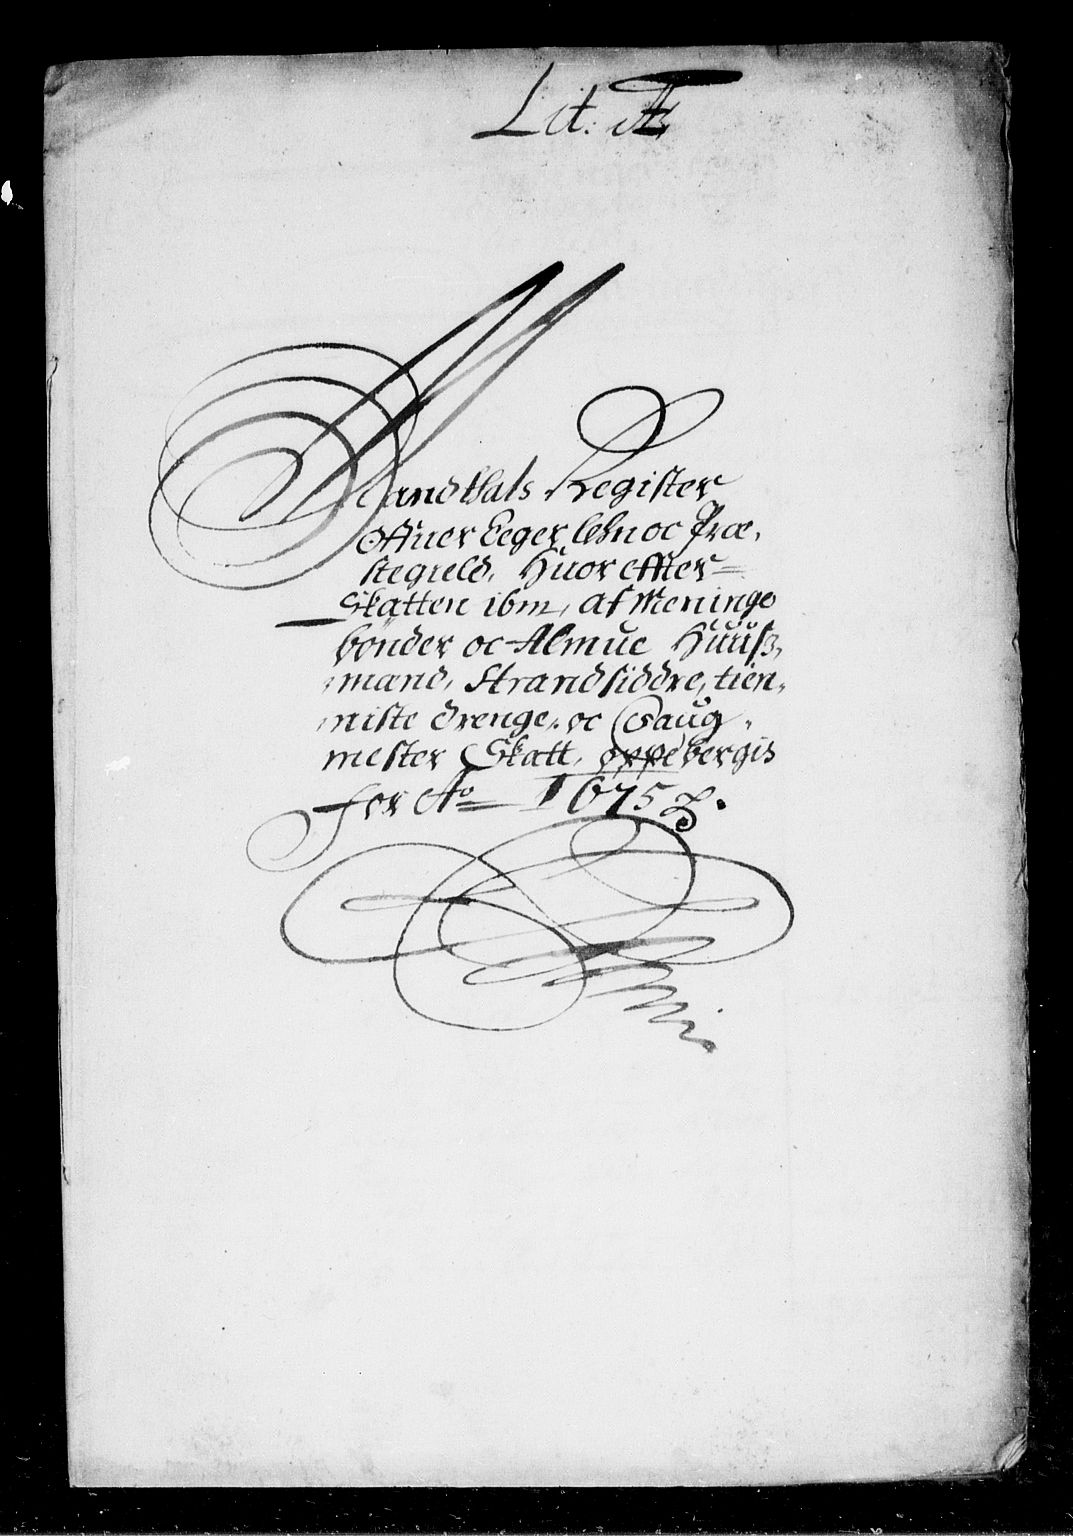 Lit: Æ
Mandthals Register
Offuer Eeger Lehn oc Præ,
stegield, Huor effter=
Skatten ibm, af Meninge
bønder oc Almue Huuß,
mænd, Strandsiddre, tien,
niste drenge, oc Saug,
mester Skatt, oppebergis
For Ao 1675